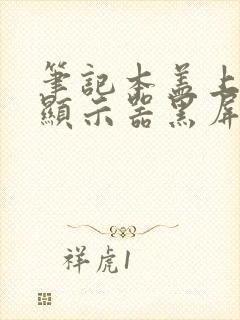 筆記本蓋上
顯示器黑屏
祥虎1